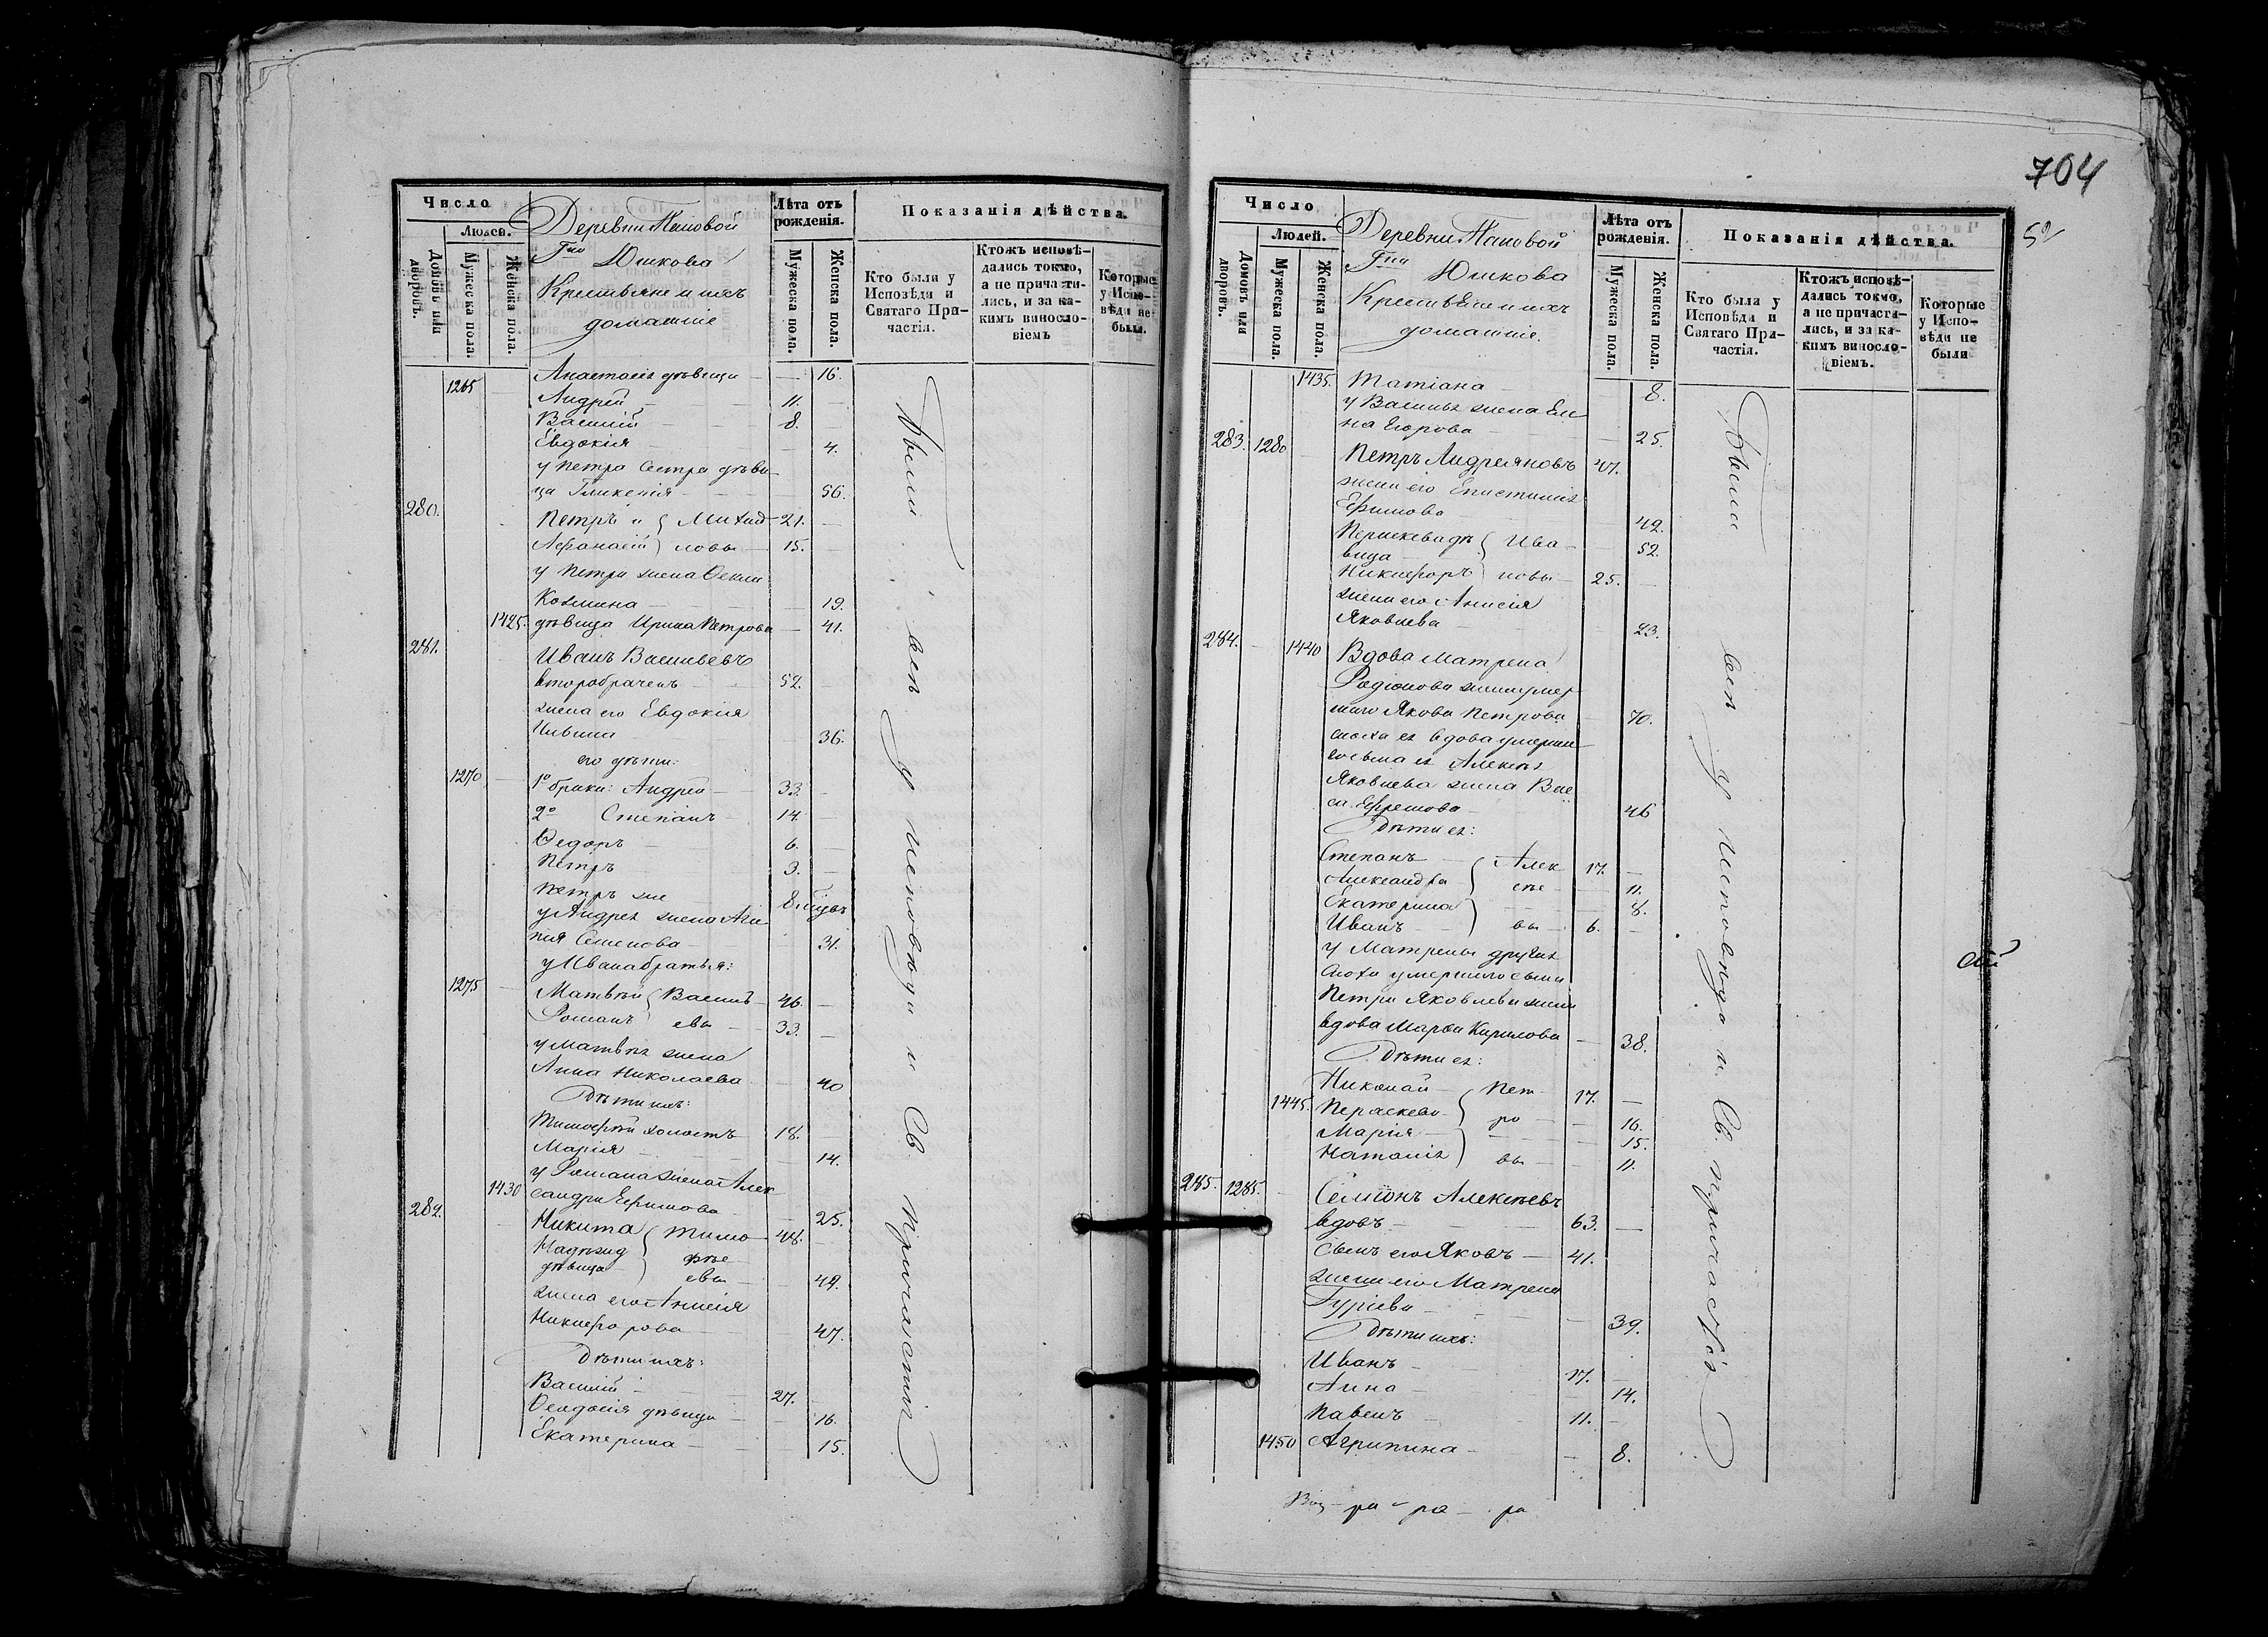 Число
Людей.
Домовъ или дворовъ.
Мужеска пола.
Женска пола.
Деревни
Г-на Юшкова
Крестьяне и ихъ
домашніе
Лѣта отъ рожденія.
Мужеска пола.
Женска пола.
Показанія дѣйства.
Кто были у Исповѣди и Святаго Причастія.
Ктожъ исповѣдались токмо, а не причастились, и за какимъ винословіемъ
Которые у Исповѣди не были.
Анастасія дѣвица — 16.
1265 Андрей — 11.
Василій — 8.
Евдокія — 4.
у Петра сестра дѣви
ца Гликерія — 56.
280. Петръ и } Михай 21.
Афанасій } ловы 15.
у Петра жена Фекла
Козмина — 19.
1425. дѣвица Ирина Петрова — 41.
281. Иванъ Васильевъ
второбраченъ — 52.
жена его Евдокія
36.
его дѣти:
1270 1го брака: Андрей — 33.
2го Степанъ — 14.
Федоръ — 6.
Петръ — 3.
Петръ же
у Андрея жена Ага
пія Семенова — 31.
у Ивана братья:
1275 Матвѣй } Василь 46.
Романъ } евы — 33.
у Матвѣя жена
Анна Николаева — 40
Дѣти ихъ:
Тимофей холостъ 18.
Марія — 14.
у Романа жена Алек
1430 сандра Ефимова — 25.
282. Никита } Тимо 48.
Надежда } фѣе
дѣвица } евы — 49.
жена его Анисія
Никифорова — 47.
Дѣти ихъ:
Василій — 27.
Феодосія дѣвица — 16.
Екатерина — 15.
Были всѣ у исповѣди и Св. Причастія
704
52
Число
Людей.
Домовъ или дворовъ.
Мужеска пола.
Женска пола.
Деревни
Г-на Юшкова
Крестьяне и ихъ
домашніе.
Лѣта отъ рожденія.
Мужеска пола.
Женска пола.
Показанія дѣйства.
Кто были у Исповѣди и Святаго Причастія.
Ктожъ исповѣдались токмо, а не причастились, и за какимъ винословіемъ.
Которые у Исповѣди не были
1435. Татіана — 8.
у Василья жена Еле
на Егорова — 25.
283. 1280 Петръ Андреяновъ 47.
жена его Епистимія
Ефимова — 49.
Параскева дѣ } Ива — 52.
вица
Никифоръ } новы — 25.
жена его Анисія
Яковлева — 23.
284. 1440 Вдова Матрена
Родіонова жена умер
шаго Якова Петрова — 70.
сноха ея вдова умерша
го сына ея Алексѣя
Яковлева жена Вас
са Ефремова — 46
Дѣти ея:
Степанъ } Алек 17.
Александра } сѣе 11.
Екатерина } 8.
Иванъ } вы — 6.
у Матрены другая
сноха умершаго сына
Петра Яковлева жена
вдова Марфа Кирилова — 38.
Дѣти ея:
Николай } Пет 17.
1445. Параскева } ро — 16.
Марія } 15.
Наталія } вы — 11.
285. 1285. Семіонъ Алексѣевъ
вдовъ — 63.
сынъ его Яковъ — 41.
жена его Матрена
Гуріева — 39.
Дѣти ихъ:
Иванъ — 17.
Анна — 14.
Павелъ — 11.
1450 Агрипина — 8.
Были всѣ у исповѣди и Св. причастія